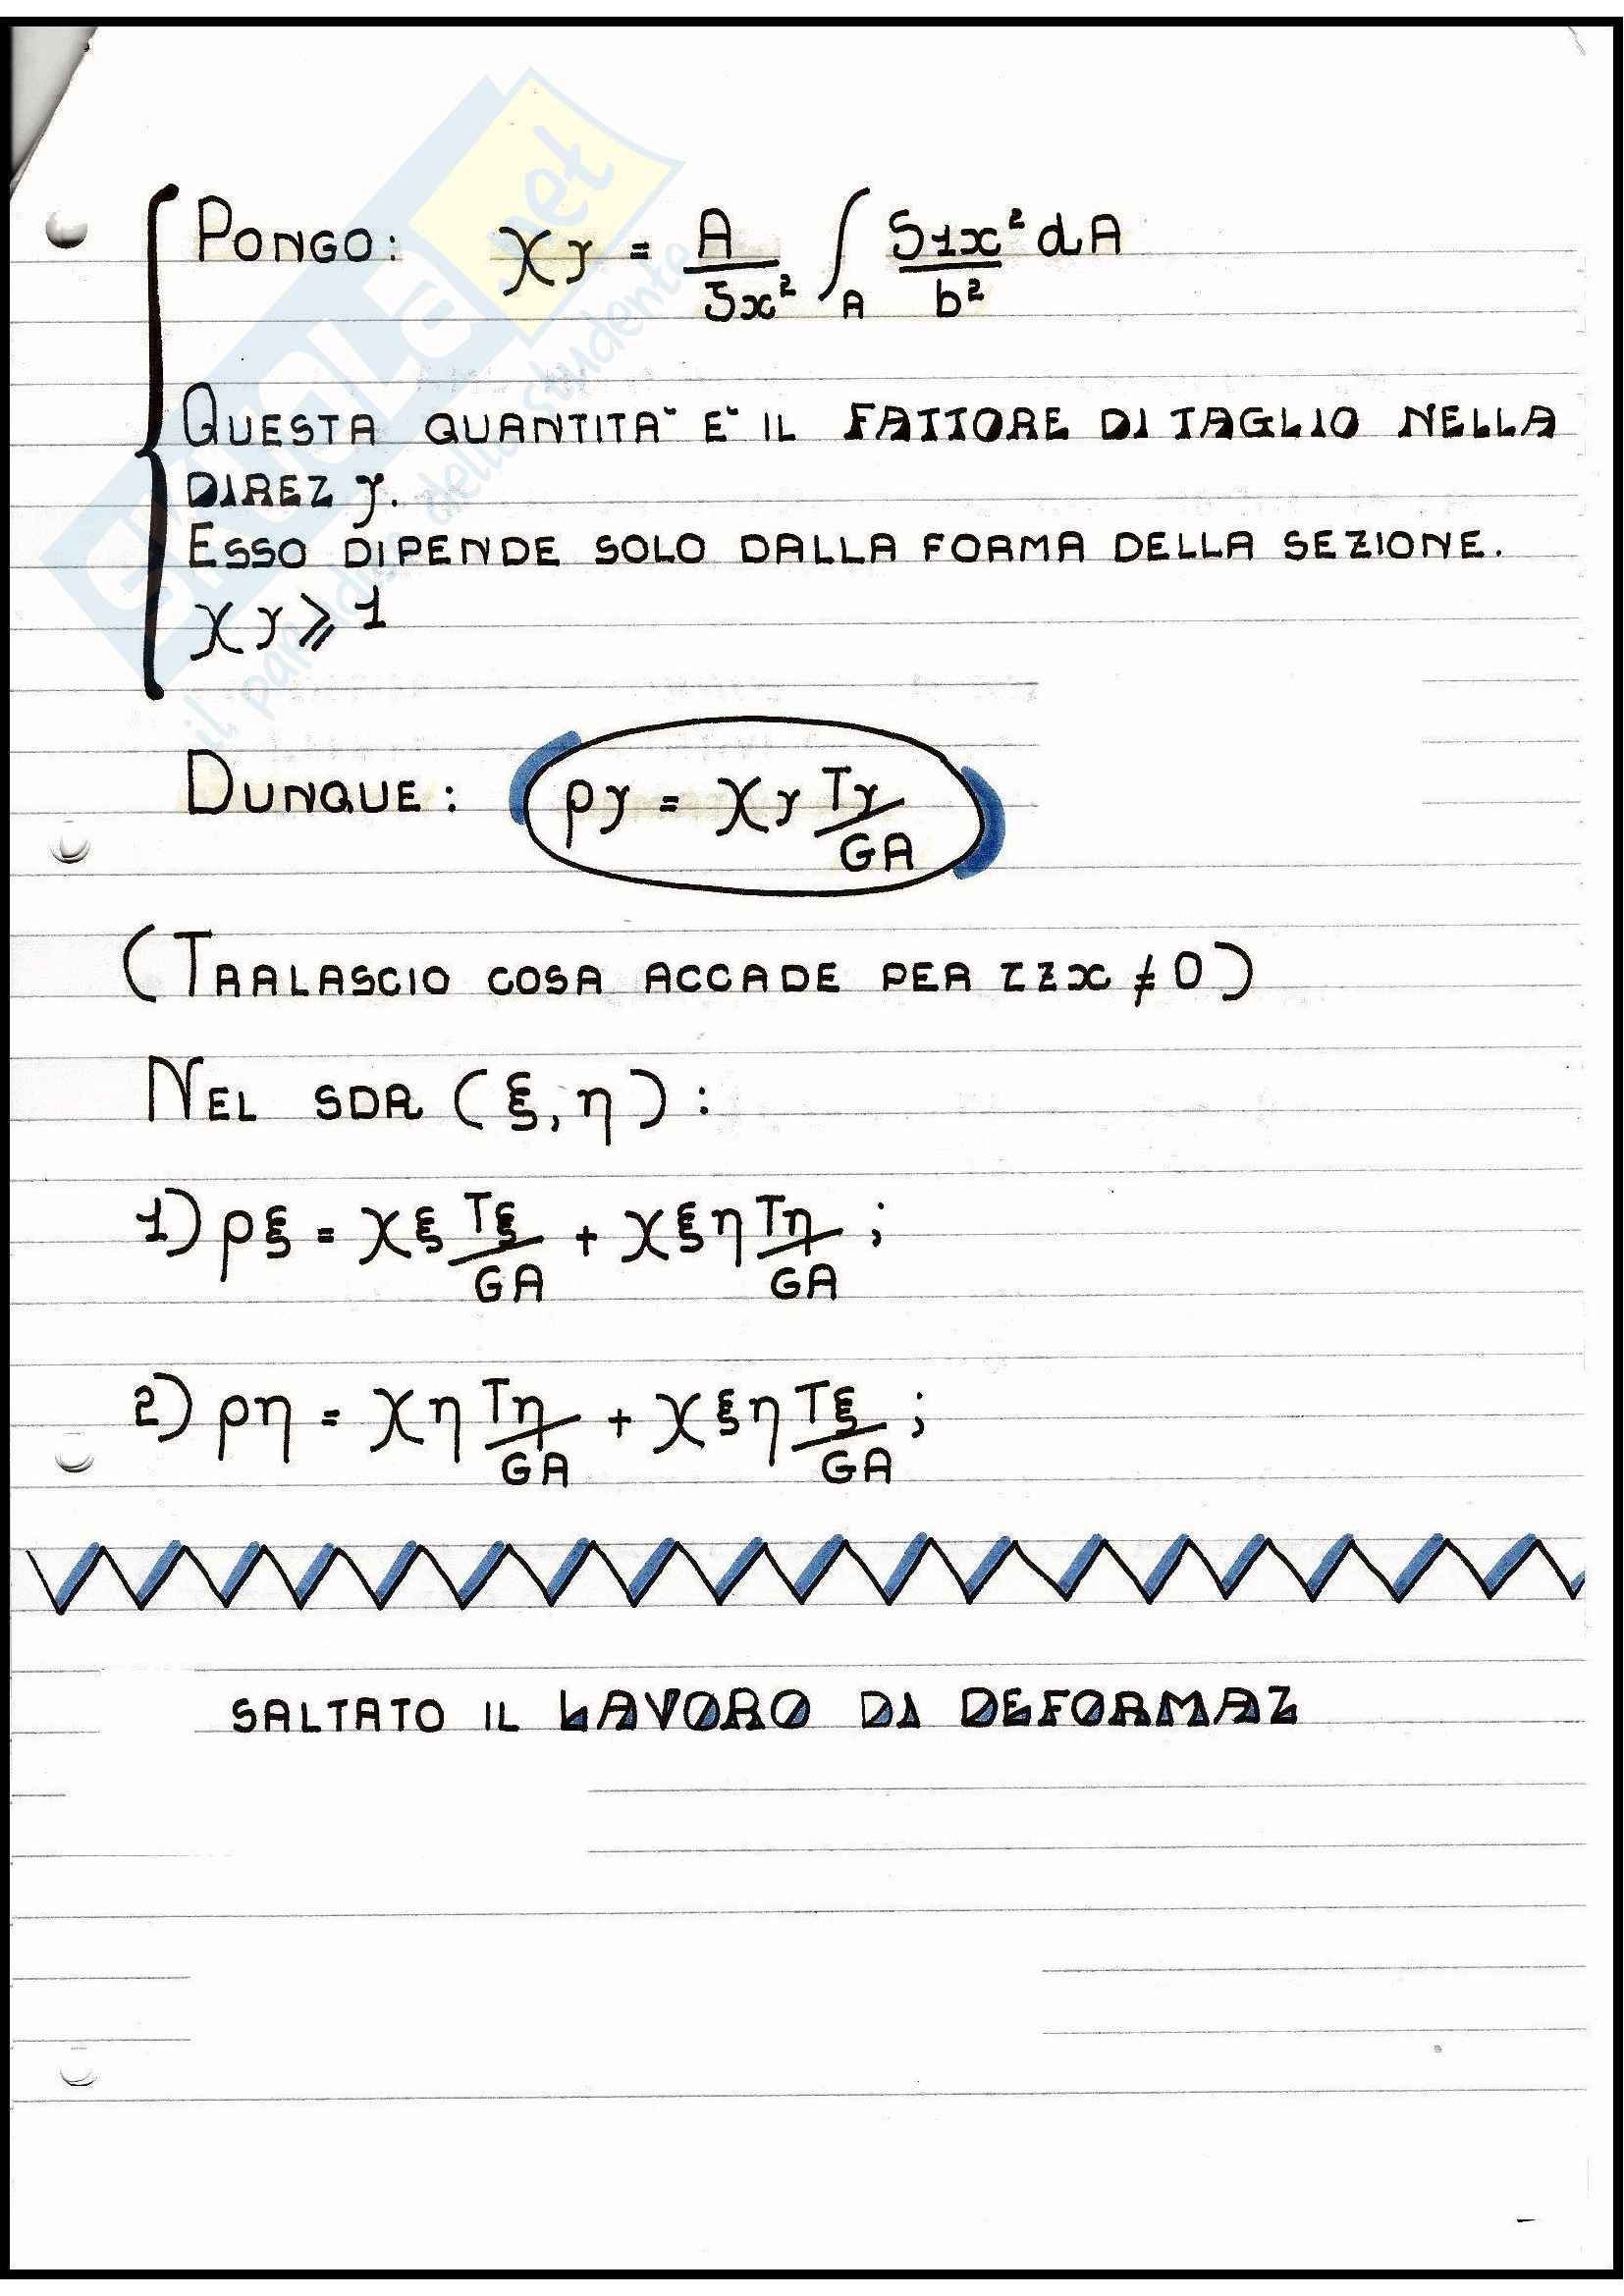 PONGO: χy = A/Jx² ∫A S1x²/b² dA
QUESTA QUANTITA' E' IL FATTORE DI TAGLIO NELLA
DIREZ y.
ESSO DIPENDE SOLO DALLA FORMA DELLA SEZIONE.
χy ⩾ 1
DUNQUE: ρy = χy Ty/GA
(TRALASCIO COSA ACCADE PER τzx ≠ 0)
NEL SDR (ξ, η):
1) ρξ = χξ Tξ/GA + χξη Tη/GA ;
2) ρη = χη Tη/GA + χξη Tξ/GA ;
SALTATO IL LAVORO DI DEFORMAZ
SKUOLA.net
il paradiso dello studente